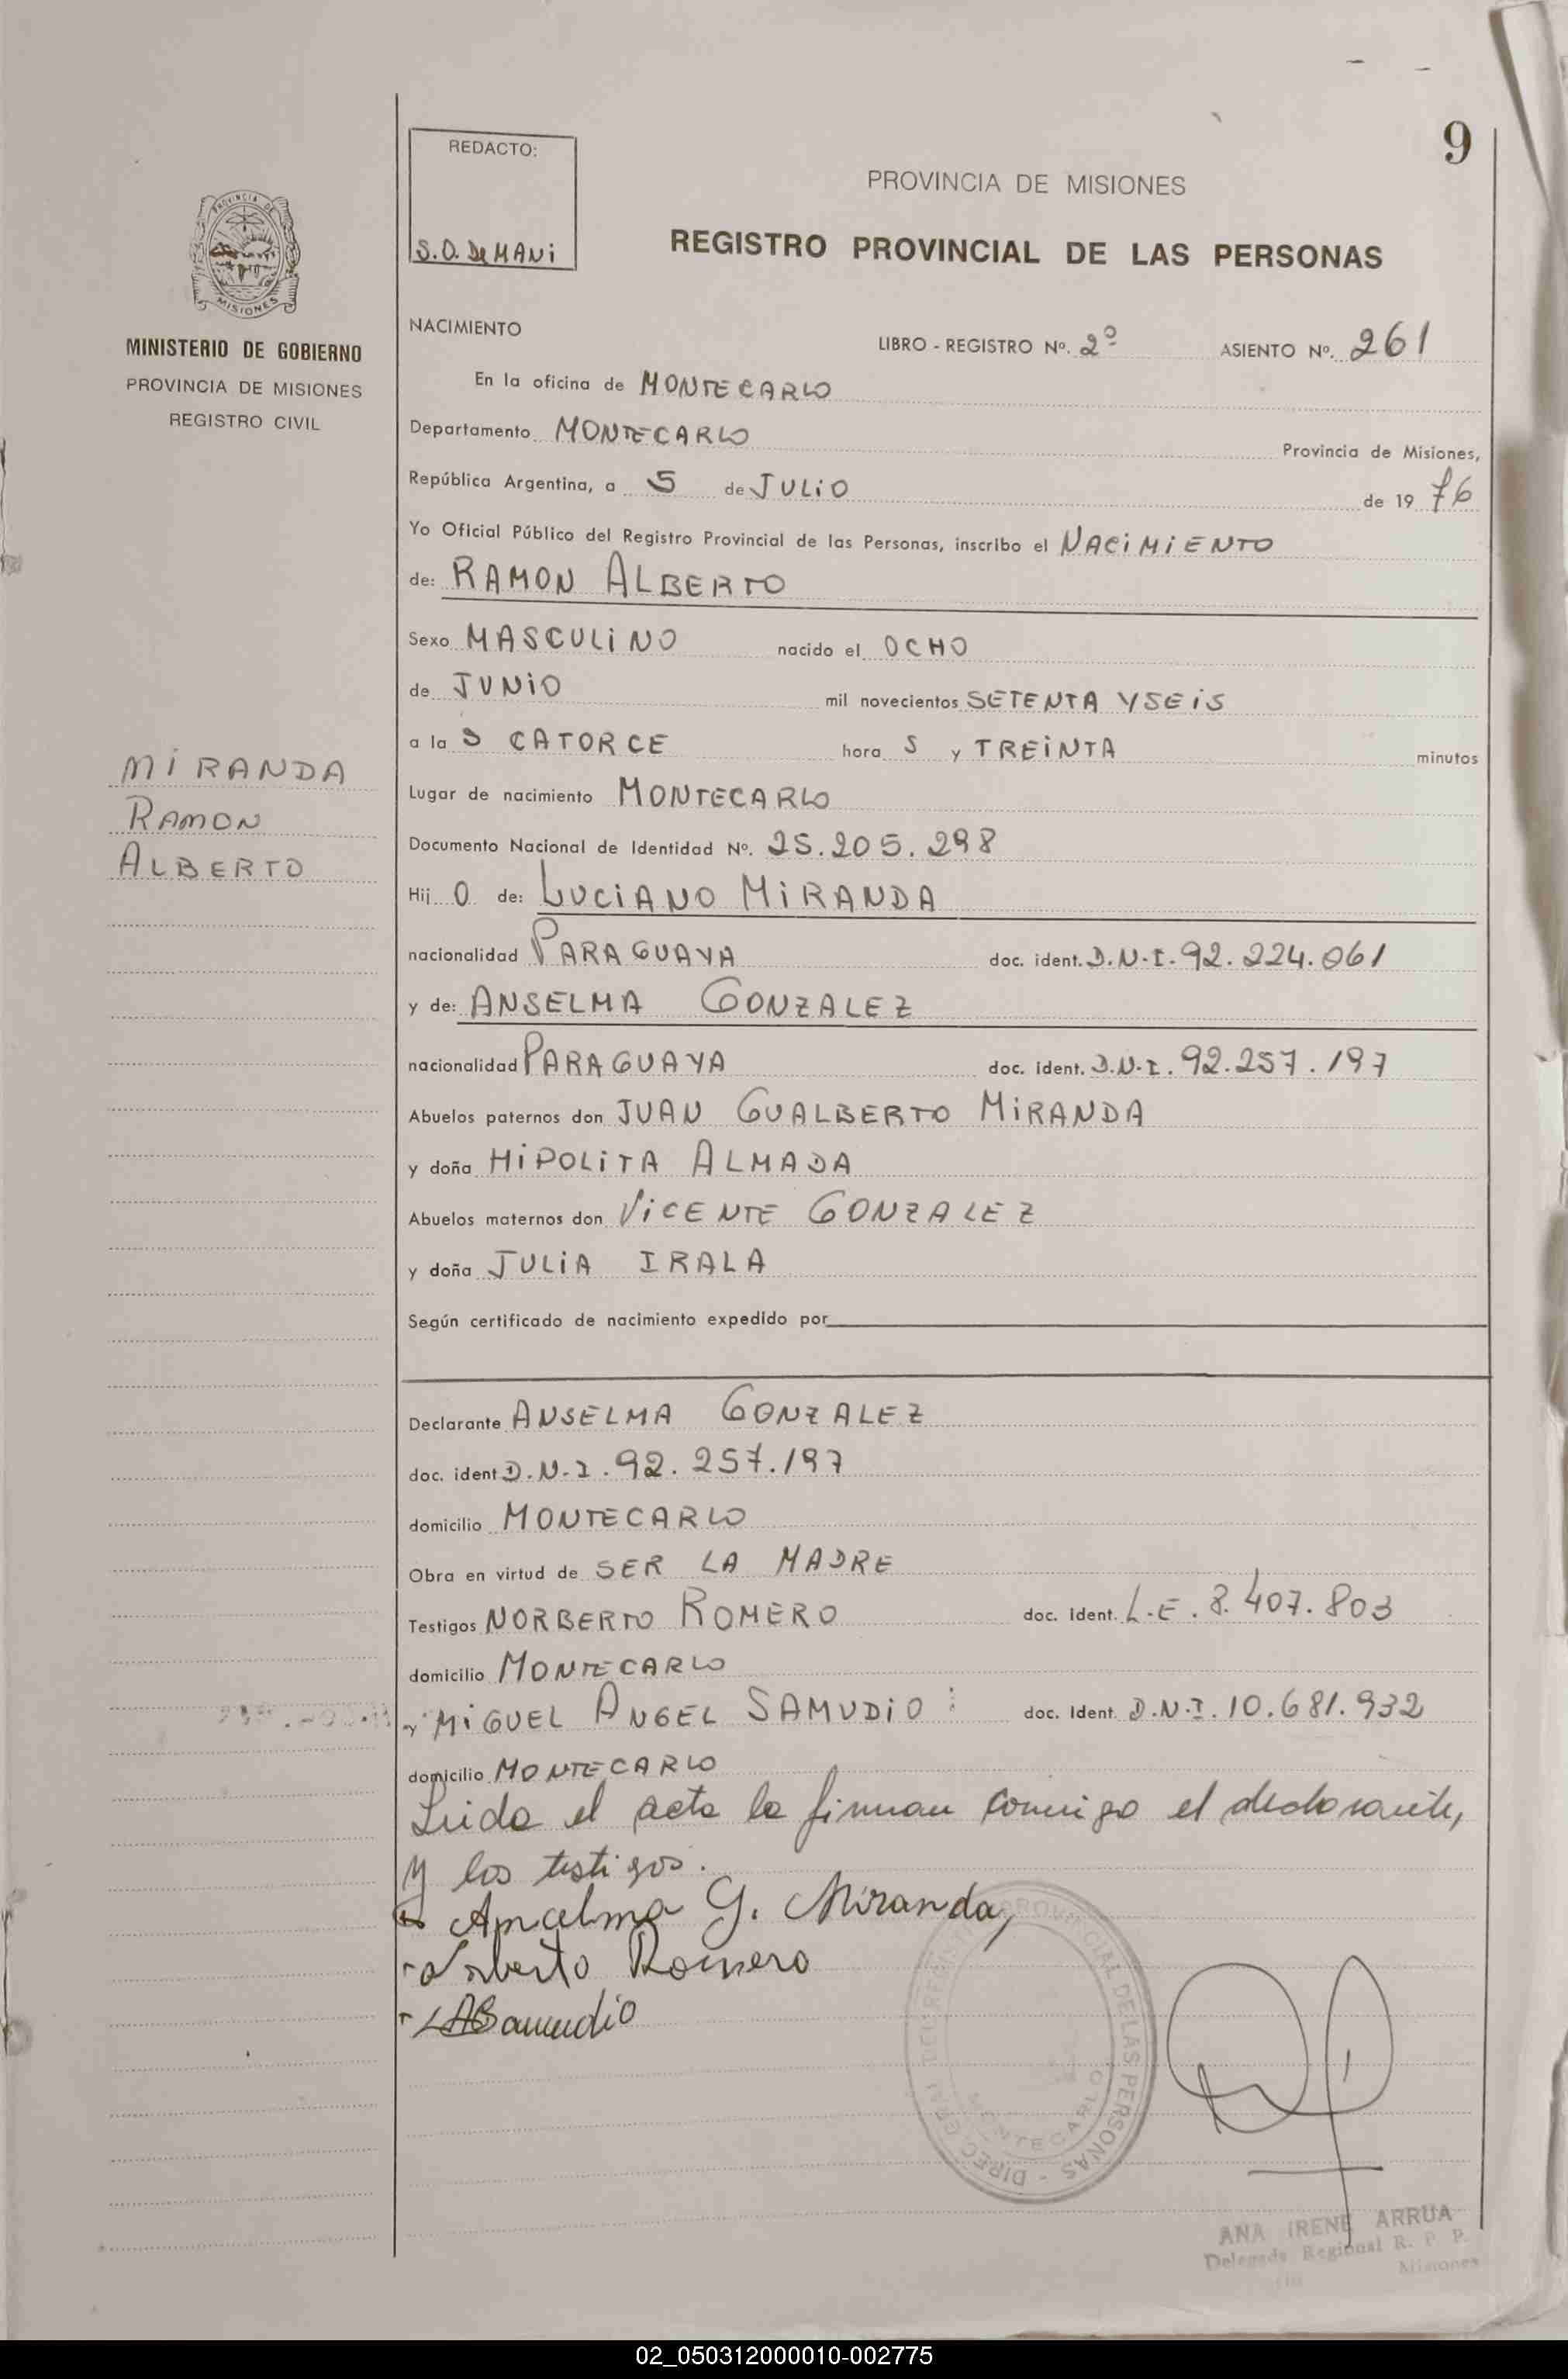 9
REDACTO:
S.O. De MANi
PROVINCIA DE MISIONES
REGISTRO PROVINCIAL DE LAS PERSONAS
PROVINCIA DE
MISIONES
MINISTERIO DE GOBIERNO
PROVINCIA DE MISIONES
REGISTRO CIVIL
MIRANDA
RAMON
ALBERTO
NACIMIENTO
LIBRO - REGISTRO Nº. 2º ASIENTO Nº. 261
En la oficina de MONTECARLO
Departamento MONTECARLO Provincia de Misiones,
República Argentina, a 5 de JULIO de 1976
Yo Oficial Público del Registro Provincial de las Personas, inscribo el NACIMIENTO
de: RAMON ALBERTO
Sexo MASCULINO nacido el OCHO
de JUNIO mil novecientos SETENTA Y SEIS
a la S CATORCE hora S y TREINTA minutos
Lugar de nacimiento MONTECARLO
Documento Nacional de Identidad Nº. 25.205.298
Hij O de: LUCIANO MIRANDA
nacionalidad PARAGUAYA doc. ident. D.N.I. 92.224.061
y de: ANSELMA GONZALEZ
nacionalidad PARAGUAYA doc. ident. D.N.I. 92.257.197
Abuelos paternos don JUAN GUALBERTO MIRANDA
y doña HIPOLITA ALMADA
Abuelos maternos don VICENTE GONZALEZ
y doña JULIA IRALA
Según certificado de nacimiento expedido por
Declarante ANSELMA GONZALEZ
doc. ident D.N.I. 92.257.197
domicilio MONTECARLO
Obra en virtud de SER LA MADRE
Testigos NORBERTO ROMERO doc. ident. L.E. 8.407.803
domicilio MONTECARLO
y MIGUEL ANGEL SAMUDIO doc. Ident. D.N.I. 10.681.932
domicilio MONTECARLO
Leida el acta la firman conmigo el declarante,
y los testigos.
Ancelma G. Miranda,
Norberto Romero
Samudio
DIREC. GRAL. DEL REGISTRO PROVINCIAL DE LAS PERSONAS -
MONTECARLO
ANA IRENE ARRUA
Delegada Regional R. P. P.
Misiones
02_050312000010-002775